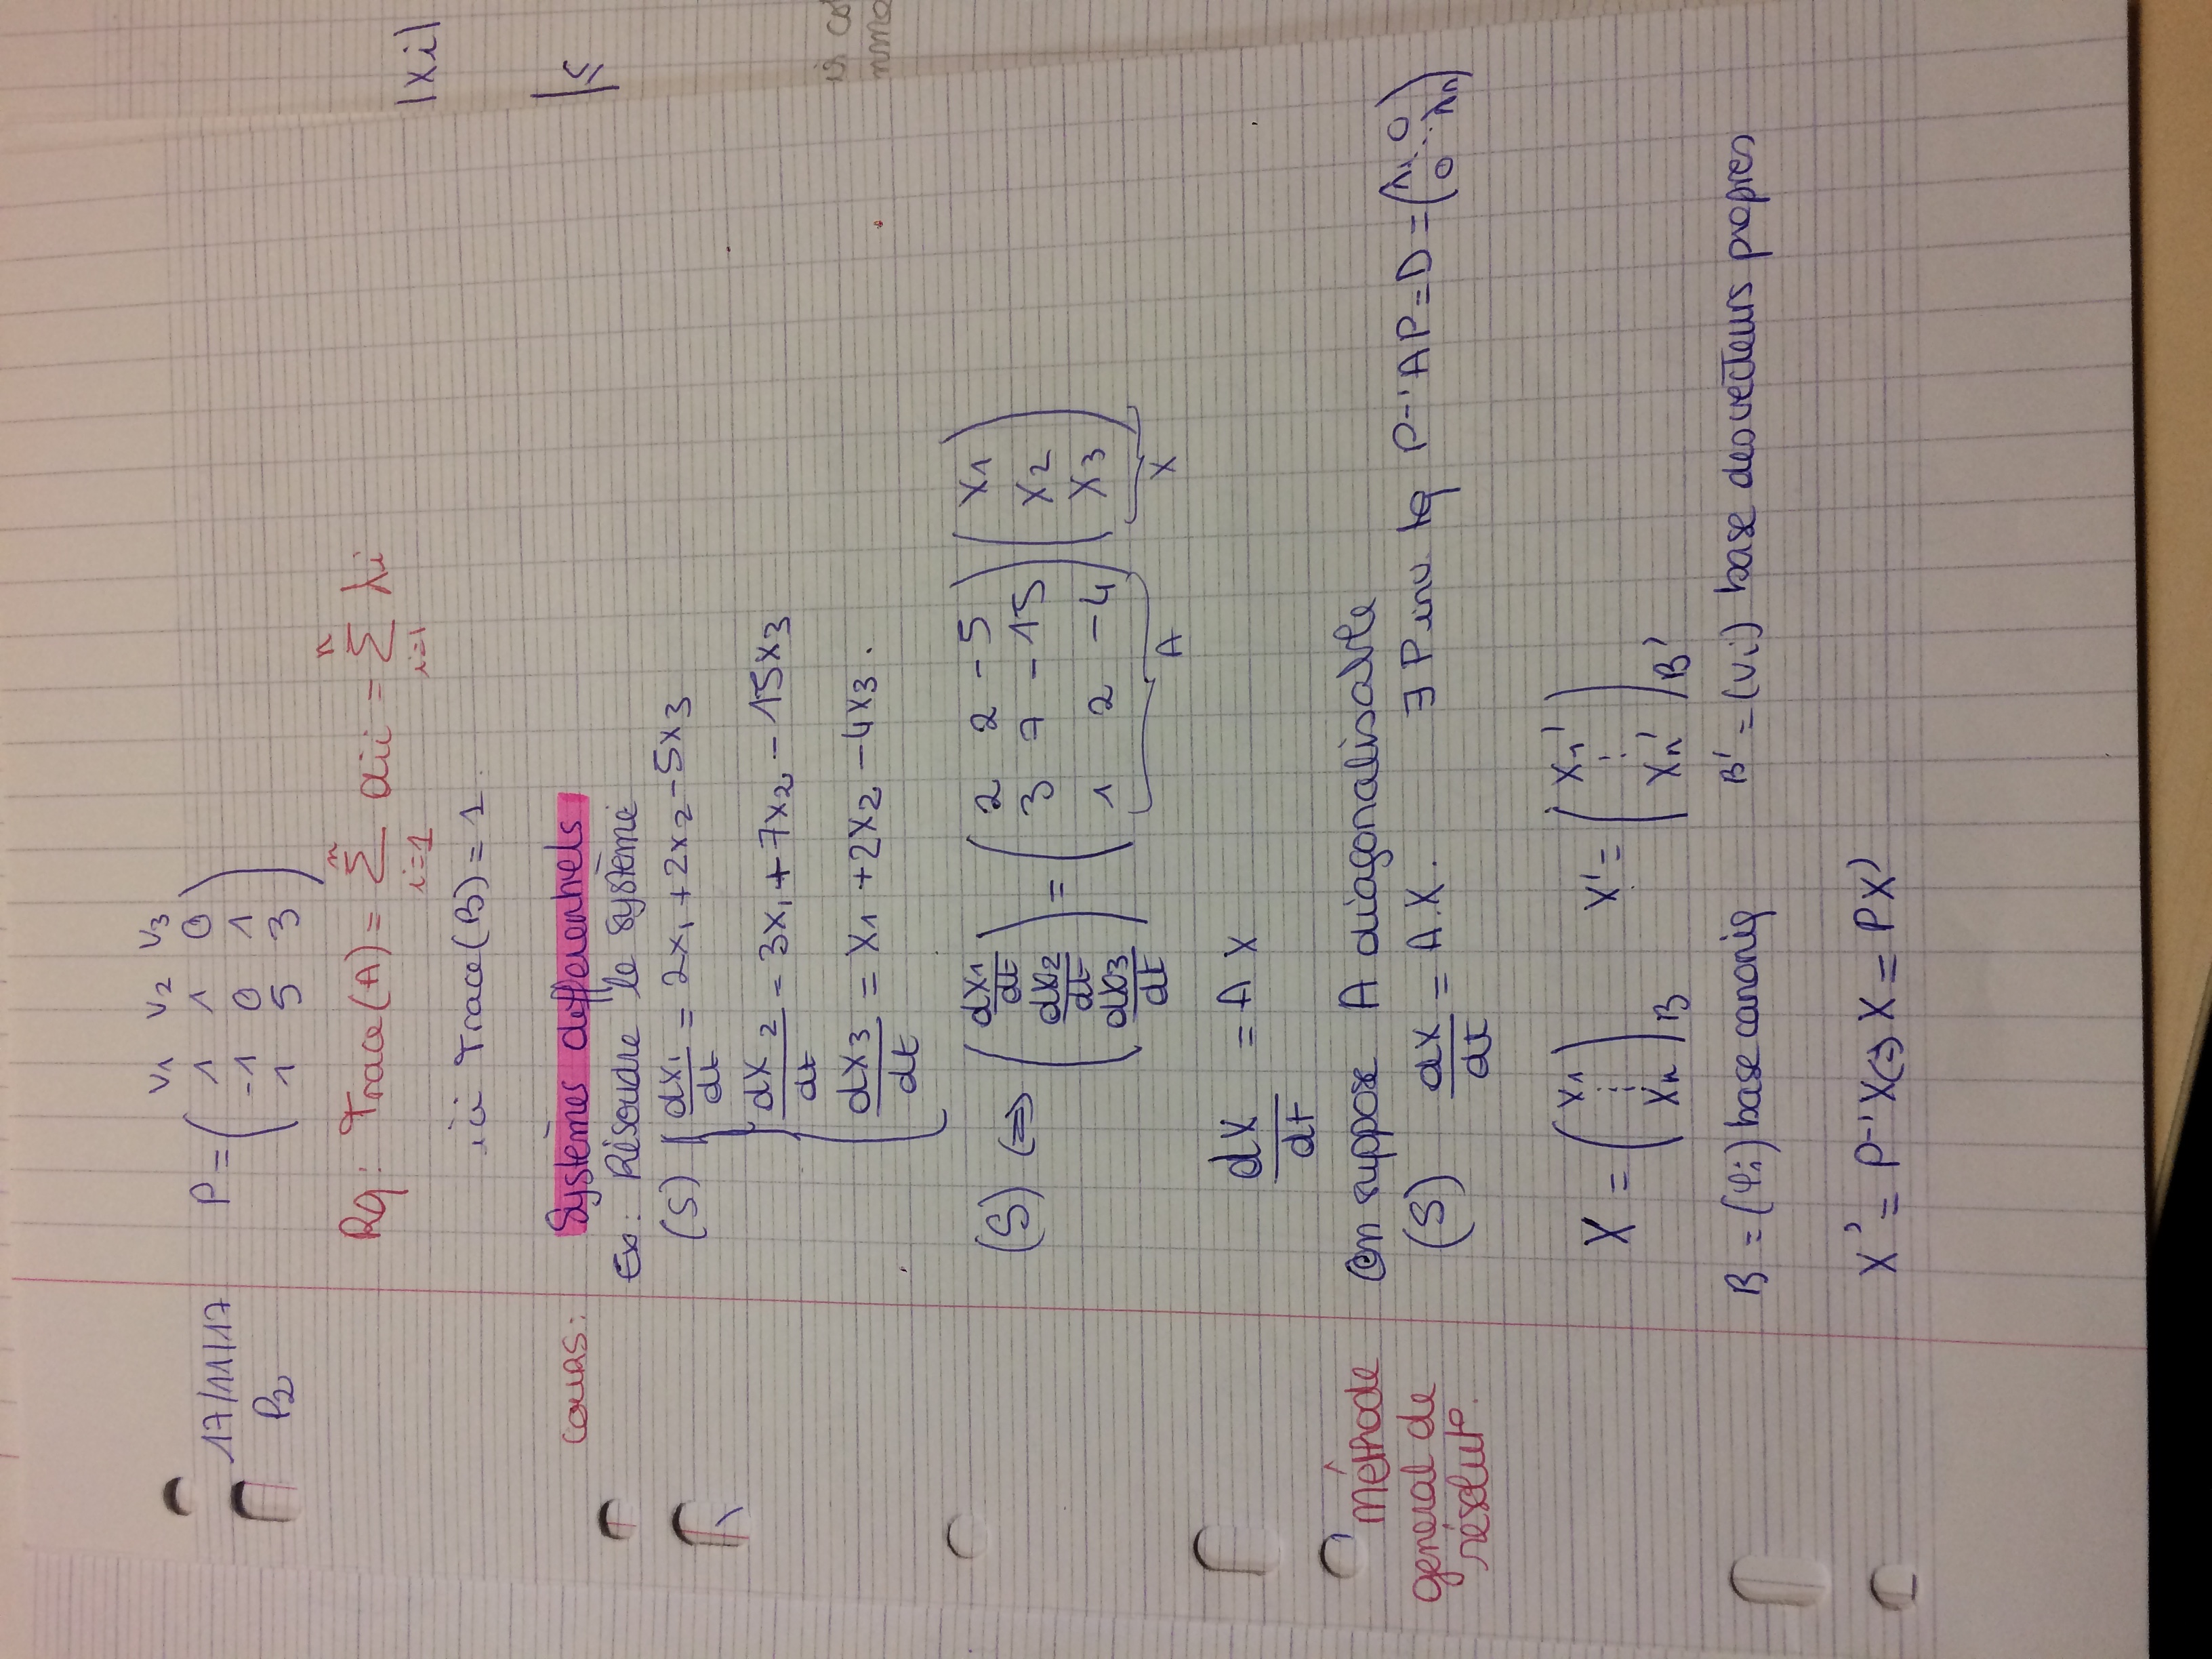 17/11/17
P2
V1 V2 V3
P = ( 1 1 0
-1 0 1
1 5 3 )
Rq : Trace(A) = Σ_{i=1}^{n} aii = Σ_{i=1}^{n} λi
ici Trace(B) = 1.
cours : Systèmes differentiels
Ex : Résoudre le système
(S) { dx1/dt = 2x1 + 2x2 - 5x3
dx2/dt = 3x1 + 7x2 - 15x3
dx3/dt = x1 + 2x2 - 4x3 .
(S) ⇔ ( dx1/dt dx2/dt dx3/dt ) = ( 2 2 -5
3 7 -15
1 2 -4 ) ( x1 x2 x3 )
A X
dX/dt = A X
Méthode general de résolut°.
On suppose A diagonalisable
(S) dX/dt = A.X. ∃ P inv. tq P⁻¹AP = D = ( λ1 0
0 ⋱ λn )
X = ( x1 ⋮ xn )B X' = ( x1' ⋮ xn' )B'
B = (φi) base canoniq B' = (Vi) base des vecteurs propres
X' = P⁻¹X ⇔ X = PX'
|xi|